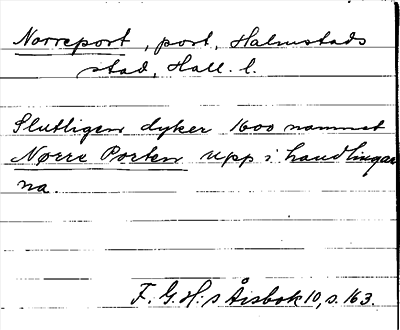 Norreport, port, Halmstads
stad, Hall. l.
Slutligen dyker 1600 namnet
Nørre Porten upp i handlingar
na.
F. G. H:s Årsbok 10, s. 163.